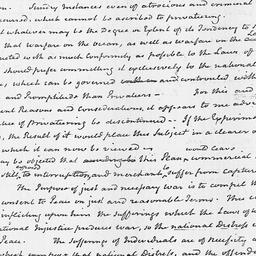 Sundry Instances even of atrocious and criminal
occurred, which cannot be ascribed to privateering.
whatever may be the Degree or Extent of its Tendency to
that warfare on the Ocean, as well as warfare on the
with as much conformity as possible to the Laws of
should prefer committing it exclusively to the national
which can be governed and controuled with
and Promptitude than Privatiers — For this and
Reasons and Considerations, it appears to me adv
of Privateering be discontinued — If the Experim
the Result of it would place this Subject in a clearer
which it can now be viewed
may be objected that this Plan would leave commercial
still, to interruption, and merchants, suffer from capture
The Purpose of just and necessary war is to compel
consent to Peace on just and reasonable Terms. This
inflicting upon him the Sufferings which the Laws of
national Injustice produces war, so the national Distress
Peace. The Sufferings of Individuals are of Necessity
that national Distress, and the offend